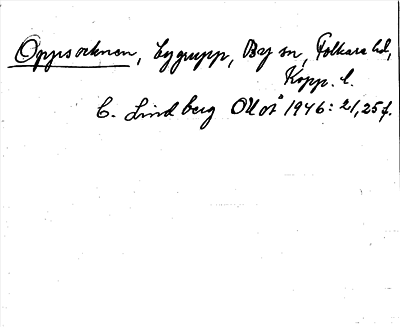 Oppsocknen, bygrupp, By sn, Folkare hd,
Kopp. l.
C. Lindberg OUoÅ 1946: 21,25 f.